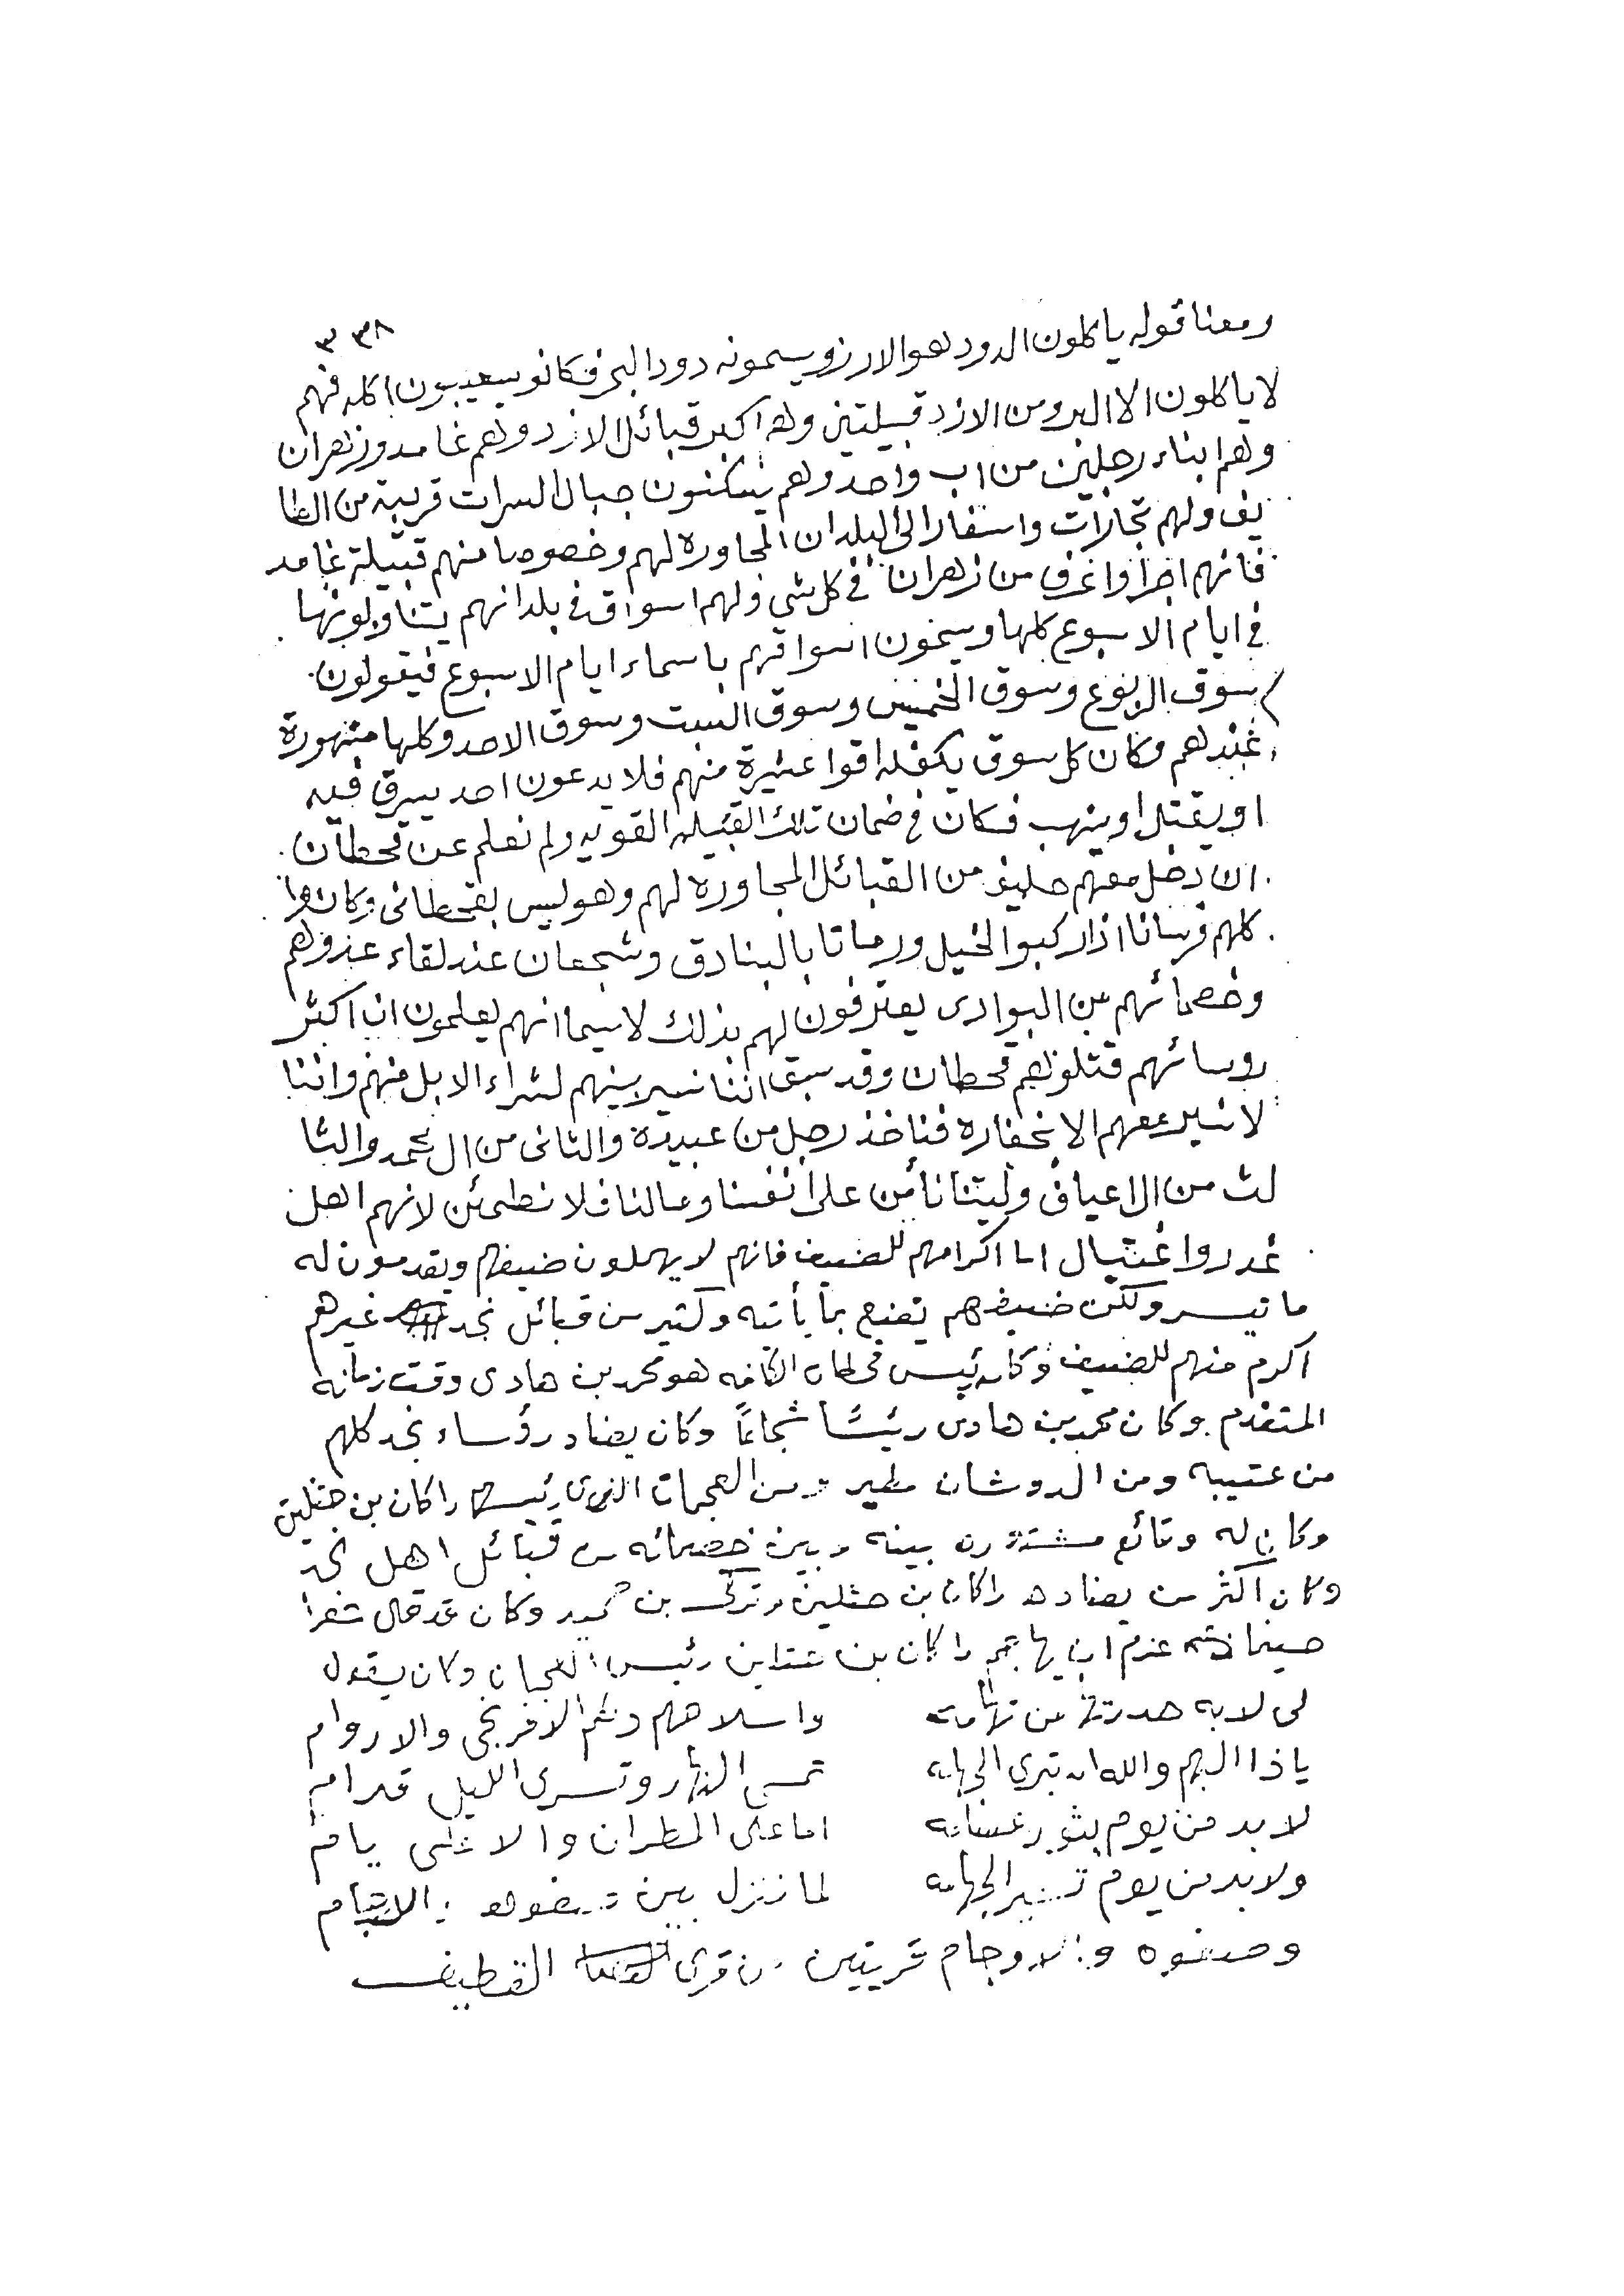 ٣٣٨
ومعنا قوله ياكلون الدود هو الارز ويسمونه دود البحر فكانو يعيبون اكله فهم
لا ياكلون الا البر ومن الازد قبيلتين وهم اكبر قبائل الازد وهم غامد وزهران
وهم ابناء رجلين من اب واحد وهم يسكنون جبال السرات قريبة من الطا
يف ولهم تجارات واسفارا الى البلدان المجاوره لهم وخصوصا منهم قبيلة غامد
فانهم اجرا واعرف من زهران في كل شي ولهم اسواق في بلدانهم يتناوبونها
في ايام الاسبوع كلها ويسمون اسواقهم باسماء ايام الاسبوع فيقولون
سوق الربوع وسوق الخميس وسوق السبت وسوق الاحد وكلها مشهورة
عندهم وكان كل سوق يكفله اقوا عشيرة منهم فلا يدعون احد يسرق فيه
او يقتل او ينهب فكان في ضمان تلك القبيله القويه ولم نعلم عن قحطان
ان دخل معهم حليف من القبائل المجاوره لهم وهو ليس بقحطاني وكانوا
كلهم فرسانا اذا ركبوا الخيل ورماتا بالبنادق وشجعان عند لقاء عدوهم
وخصمائهم من البوادى يعترفون لهم بذلك لاسيما انهم يعلمون ان اكثر
روسائهم قتلوهم قحطان وقد سبق اننا نسير بينهم لشراء الابل منهم واننا
لا نسير معهم الا بخفارة فناخذ رجل من عبيدة والثانى من ال محمد والثا
لث من الاعياف وليتنا نأمن على انفسنا ومالنا فلا نطمئن لانهم اهل
غدر واغتيال اما اكرامهم للضيف فانهم لا يهملون ضيفهم ويقدمون له
ما تيسر ولكن ضيفهم يقنع بما يأتيه وكثير من قبائل نجد غيرهم
اكرم منهم للضيف وكان رئيس قحطان الكافه هو محمد بن هادى وقت زمانه
المتقدم وكان محمد بن هادى رئيسًا شجاعًا وكان يضاد رؤساء نجد كلهم
من عتيبه ومن الدوشان مطير ومن العجمان الذى رئيسهم راكان بن حثلين
وكان له وقائع مشتدة بينه وبين خصمائه من قبائل اهل نجد
وكان اكثر من يضاده راكان بن حثلين وتركي بن حميد وكان قد قال شعرا
حينما عزم ان يهاجم راكان بن حثلين رئيس العجمان وكان يقول
لى لابه حدرتها من تهامه واسلاحهم الافرنجى والاروام
يا ذا البهم والله ان تبري الجهامه تمسي النهار وتسرى الليل قدام
لا بد من يوم يثور عسامه اما على المطران والا على يام
ولا بد من يوم تسير الجهامه لما ننزل بين صفوه والاوجام
وصفوه والاوجام قريتين من قرى القطيف